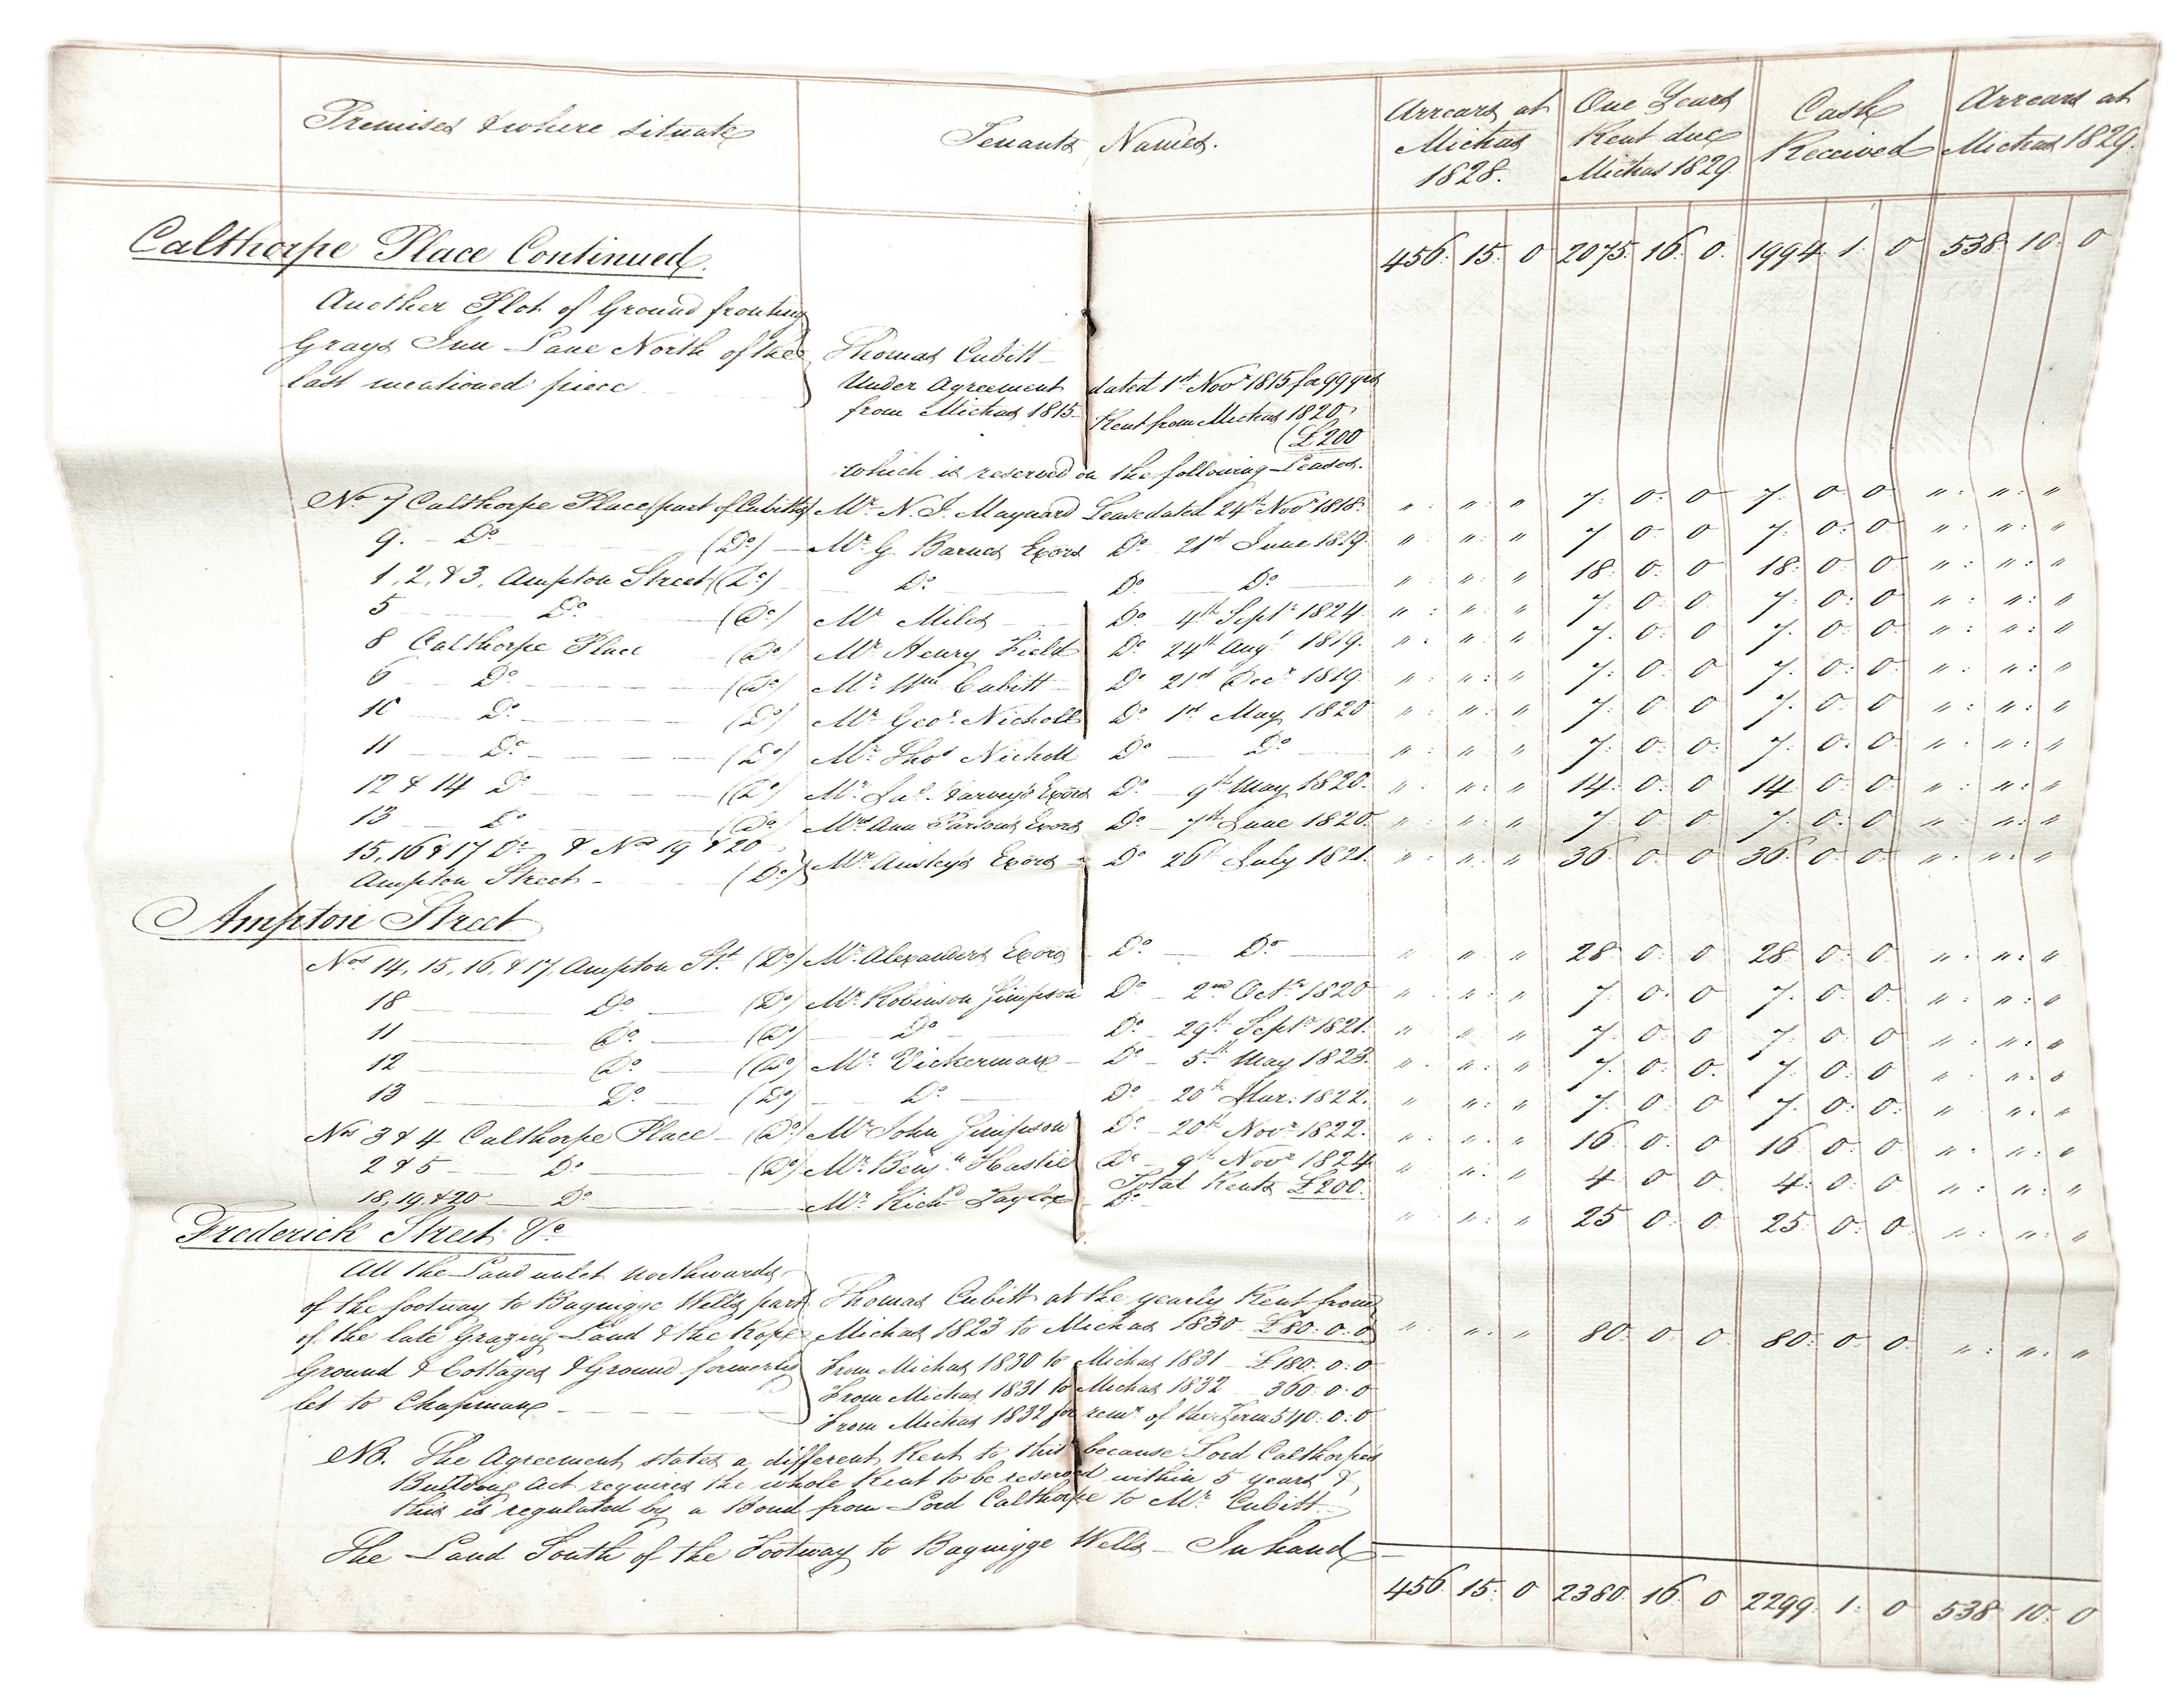 Premises & where situate Tenants Names. Arrears at Michas 1828. One Years Rent due Michas 1829. Cash Received Arrears at Michas 1829.
Calthorpe Place Continued. 456. 15. 0 2075. 16. 0. 1994. 1. 0 538. 10. 0
Another Plot of Ground fronting
Grays Inn Lane North of the Thomas Cubitt
last mentioned piece Under Agreement dated 1st Novr 1815 for 99 yrs
from Michas 1815 Rent from Michas 1820
(£200
which is reserved on the following Leases.
No 7 Calthorpe Place (part of Cubitts) Mr N. J. Maynard Lease dated 24th Novr 1818. " " " 7. 0. 0 7. 0. 0 " " "
9. Do (Do) Mr G. Barnes Exors Do 21st June 1819 " " " 7. 0. 0 7. 0. 0 " " "
1, 2, & 3, Ampton Street (Do) Do Do Do " " " 18. 0. 0 18. 0. 0 " " "
5 Do (Do) Mr Miles Do 4th Septr 1824 " " " 7. 0. 0 7. 0. 0 " " "
8 Calthorpe Place (Do) Mr Henry Field Do 24th Augt 1819. " " " 7. 0. 0 7. 0. 0 " " "
6 Do (Do) Mr Wm Cubitt Do 21st Decr 1819 " " " 7. 0. 0 7. 0. 0 " " "
10 Do (Do) Mr Geoe Nicholl Do 1st May 1820 " " " 7. 0. 0 7. 0. 0 " " "
11 Do (Do) Mr Thos Nicholl Do Do " " " 7. 0. 0 7. 0. 0 " " "
12 & 14 Do (Do) Mr Jas Harvey's Exors Do 9th May 1820. " " " 14. 0. 0 14. 0. 0 " " "
13 Do (Do) Mrs Ann Parson's Exors Do 7th June 1820. " " " 7. 0. 0 7. 0. 0 " " "
15, 16 & 17 Do & Nos 19 & 20
Ampton Street (Do) Mr Ainsley's Exors Do 26th July 1821. " " " 36. 0. 0 36. 0. 0 " " "
Ampton Street
Nos 14, 15, 16, & 17, Ampton St. (Do) Mr Alexanders Exors Do Do " " " 28 0 0 28 0 0 " " "
18 Do (Do) Mr Robinson Jimpson Do 2nd Octr 1820 " " " 7. 0. 0 7. 0. 0 " " "
11 Do (Do) Do Do 29th Septr 1821. " " " 7. 0. 0 7. 0. 0 " " "
12 Do (Do) Mr Vickerman Do 5th May 1823. " " " 7. 0. 0. 7. 0. 0 " " "
13 Do (Do) Do Do 20th Mar: 1822. " " " 7. 0. 0 7. 0. 0 " " "
Nos 3 & 4 Calthorpe Place (Do) Mr John Jimpson Do 20th Novr 1822. " " " 16 0 0 16 0 0 " " "
2 & 5 Do (Do) Mr Benjn Hastie Do 9th Novr 1824 " " " 4 0 0 4. 0. 0 " " "
Total Rents £200.
18, 19, & 20 Do Mr Richd Taylor Do " " " 25 0. 0 25 0. 0 " " "
Frederick Street &c
All the Land unlet Northwards
of the footway to Bagnigge Wells part Thomas Cubitt at the yearly Rent from
of the late Grazing Land & the Rope Michas 1823 to Michas 1830 £80. 0. 0 " " " 80. 0. 0 80. 0. 0. " " "
Ground & Cottages & Ground formerly From Michas 1830 to Michas 1831 £180. 0. 0
let to Chapman From Michas 1831 to Michas 1832 360. 0. 0
From Michas 1832 for remr of the Term 540. 0. 0
NB. The Agreement states a different Rent to this because Lord Calthorpe's
Building Act requires the whole Rent to be reserved within 5 years &
this is regulated by a Bond from Lord Calthorpe to Mr Cubitt
The Land South of the Footway to Bagnigge Wells – In hand
456. 15. 0 2380. 16. 0 2299. 1. 0 538 10. 0